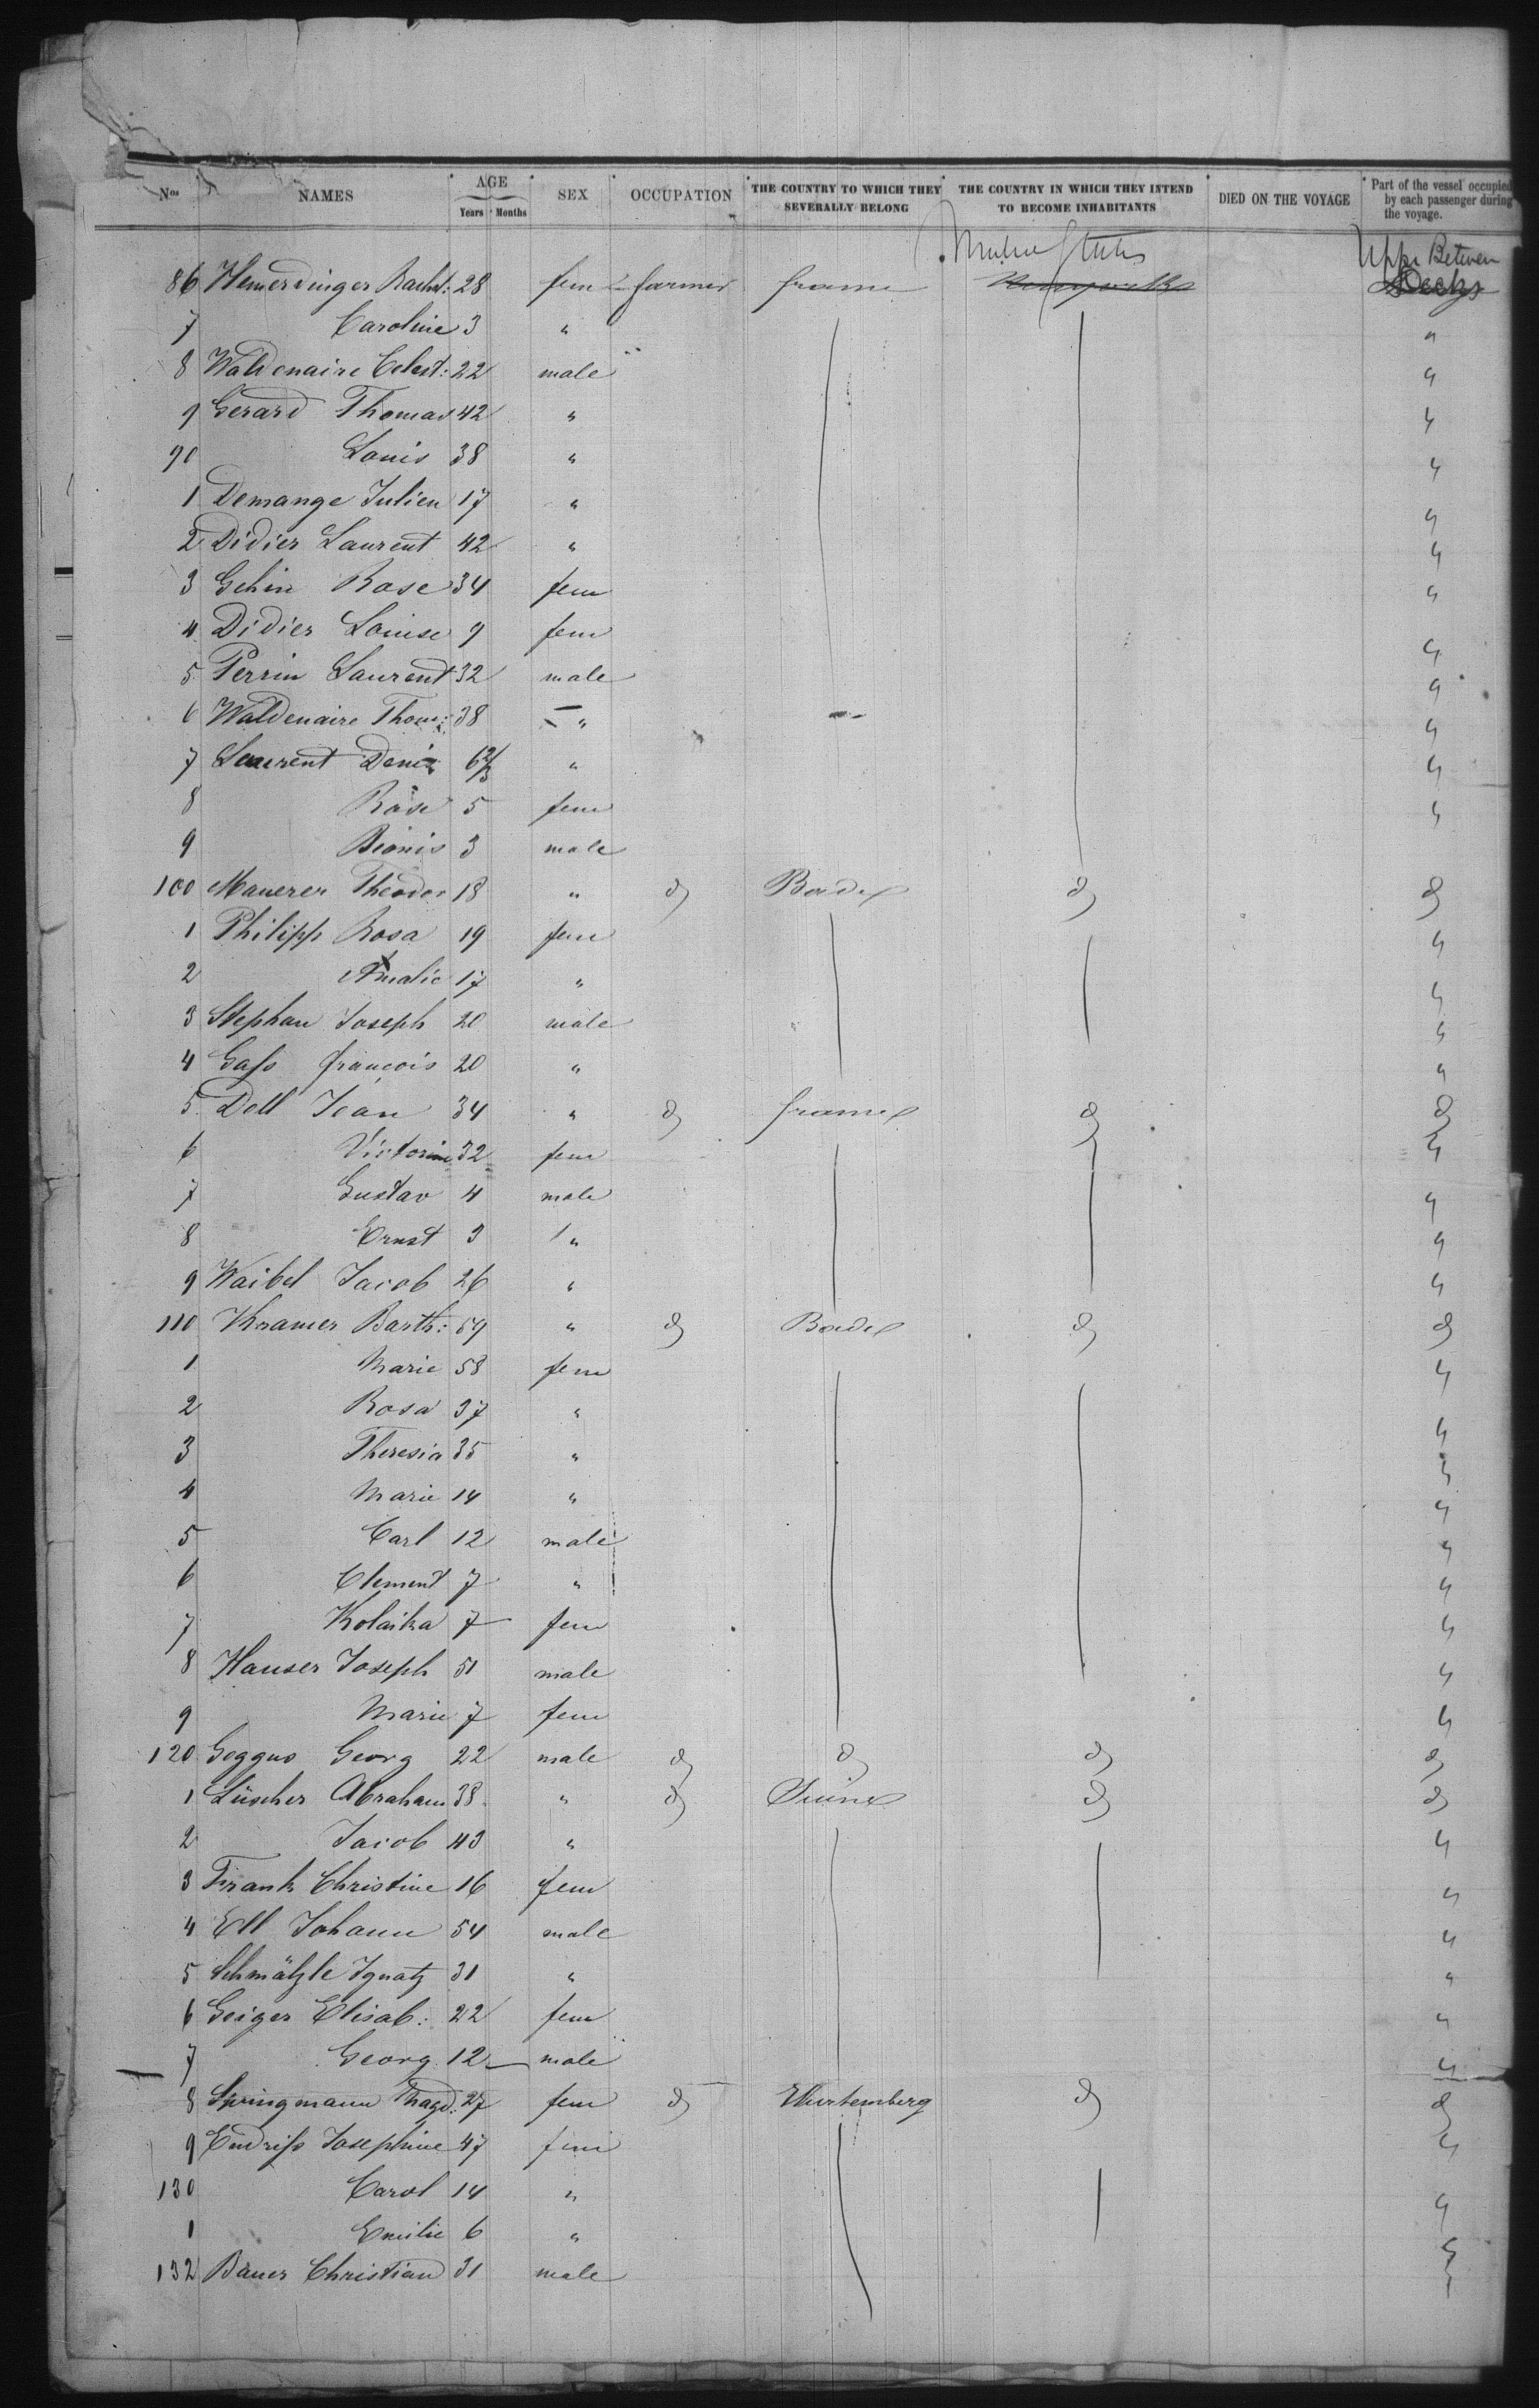 Nos NAMES AGE Years Months SEX OCCUPATION THE COUNTRY TO WHICH THEY SEVERALLY BELONG THE COUNTRY IN WHICH THEY INTEND TO BECOME INHABITANTS DIED ON THE VOYAGE Part of the vessel occupied by each passenger during the voyage.
States Upper Between
86 Hemerdinger Rachel: 28 fem farmer france Decks
7 Caroline 3 "
8 Waldenaire Celest: 22 male
9 Gerard Thomas 42 "
90 Louis 38 "
1 Demange Julien 17 "
2 Didier Laurent 42 "
3 Gehin Rose 34 fem
4 Didier Louise 9 fem
5 Perrin Laurent 32 male
6 Waldenaire Thom: 38 "
7 Laurent 6 "
8 Rose 5 fem
9 3 male
100 Maurer Theodor 18 " do Baden do do
1 Philipp Rosa 19 fem
2 Amalie 17 "
3 Stephan Joseph 20 male
4 Gass françois 20 "
5 Doll Jean 34 " do france do do
6 Victorine 32 fem
7 Gustav 4 male
8 Ernst 3 "
9 Waibel Jacob 26 "
110 Kramer Barth: 59 " do Baden do do
1 Marie 58 fem
2 Rosa 37 "
3 Theresia 35 "
4 Marie 14 "
5 Carl 12 male
6 Clement 7 "
7 7 fem
8 Hauser Joseph 51 male
9 Marie 7 fem
120 Georg 22 male do do do do
1 Lüscher Abraham 38 " do do do
2 Jacob 43 "
3 Frank Christine 16 fem
4 Ell Johann 54 male
5 Schmälzle Ignatz 31 "
6 Geiger Elisab: 22 fem
7 Georg 12 male
8 Springmann Magd: 27 fem do Wurtemberg do do
9 Endriss Josephine 47 fem
130 Carol 14 "
1 Emilie 6 "
132 Bauer Christian 31 male